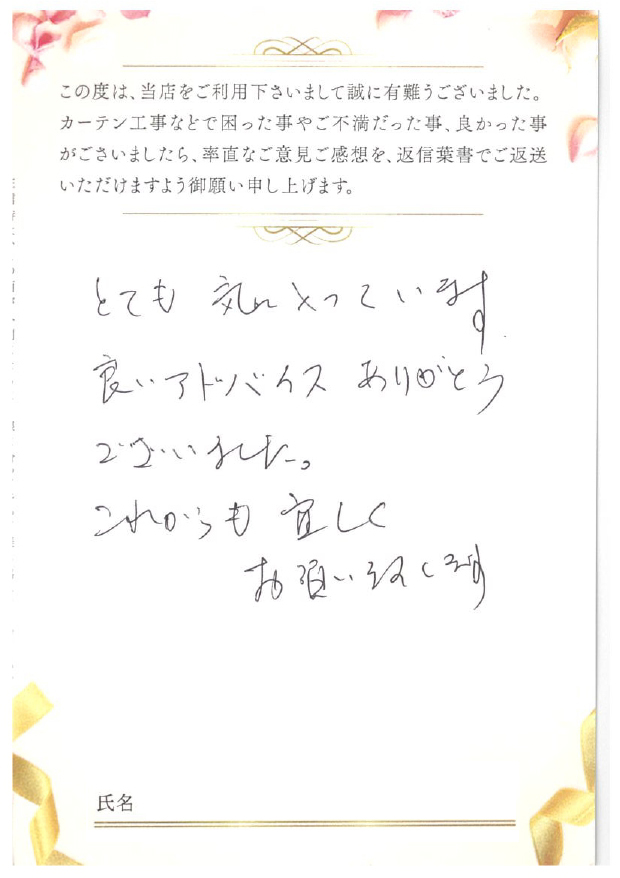 この度は、当店をご利用下さいまして誠に有難うございました。
カーテン工事などで困った事やご不満だった事、良かった事
がございましたら、率直なご意見ご感想を、返信葉書でご返送
いただけますよう御願い申し上げます。
とても 気に入っています
良いアドバイス ありがとう
ございました。
これからも 宜しく
お願い致します
氏名